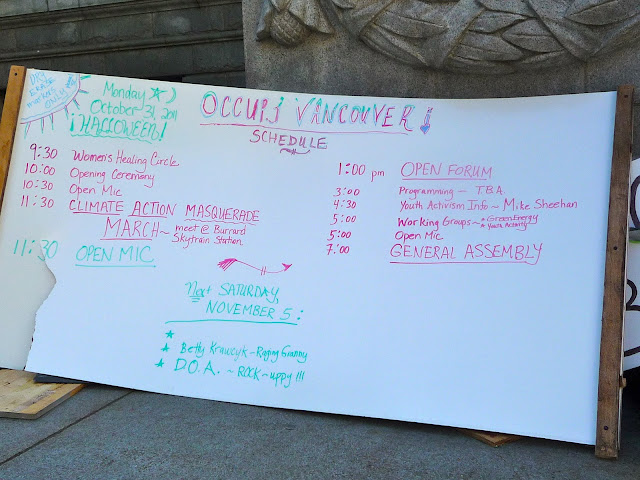 DRY
ERASE
MARKER
ONLY
Monday
October 31, 2011
¡HALLOWEEN!
OCCUPY VANCOUVER!
SCHEDULE
9:30 Women's Healing Circle
10:00 Opening Ceremony
10:30 Open Mic
11:30 CLIMATE ACTION MASQUERADE
MARCH ~ meet @ Burrard
Skytrain Station
11:30 OPEN MIC
1:00 pm OPEN FORUM
3:00 Programming — T.B.A.
4:30 Youth Activism Info ~ Mike Sheehan
5:00 Working Groups ~ * Green Energy
* Youth Activity
5:00 Open Mic
7:00 GENERAL ASSEMBLY
Next SATURDAY,
NOVEMBER 5:
*
* Betty Krawczyk ~ Raging Granny
* D.O.A. ~ ROCK ~ uppy !!!